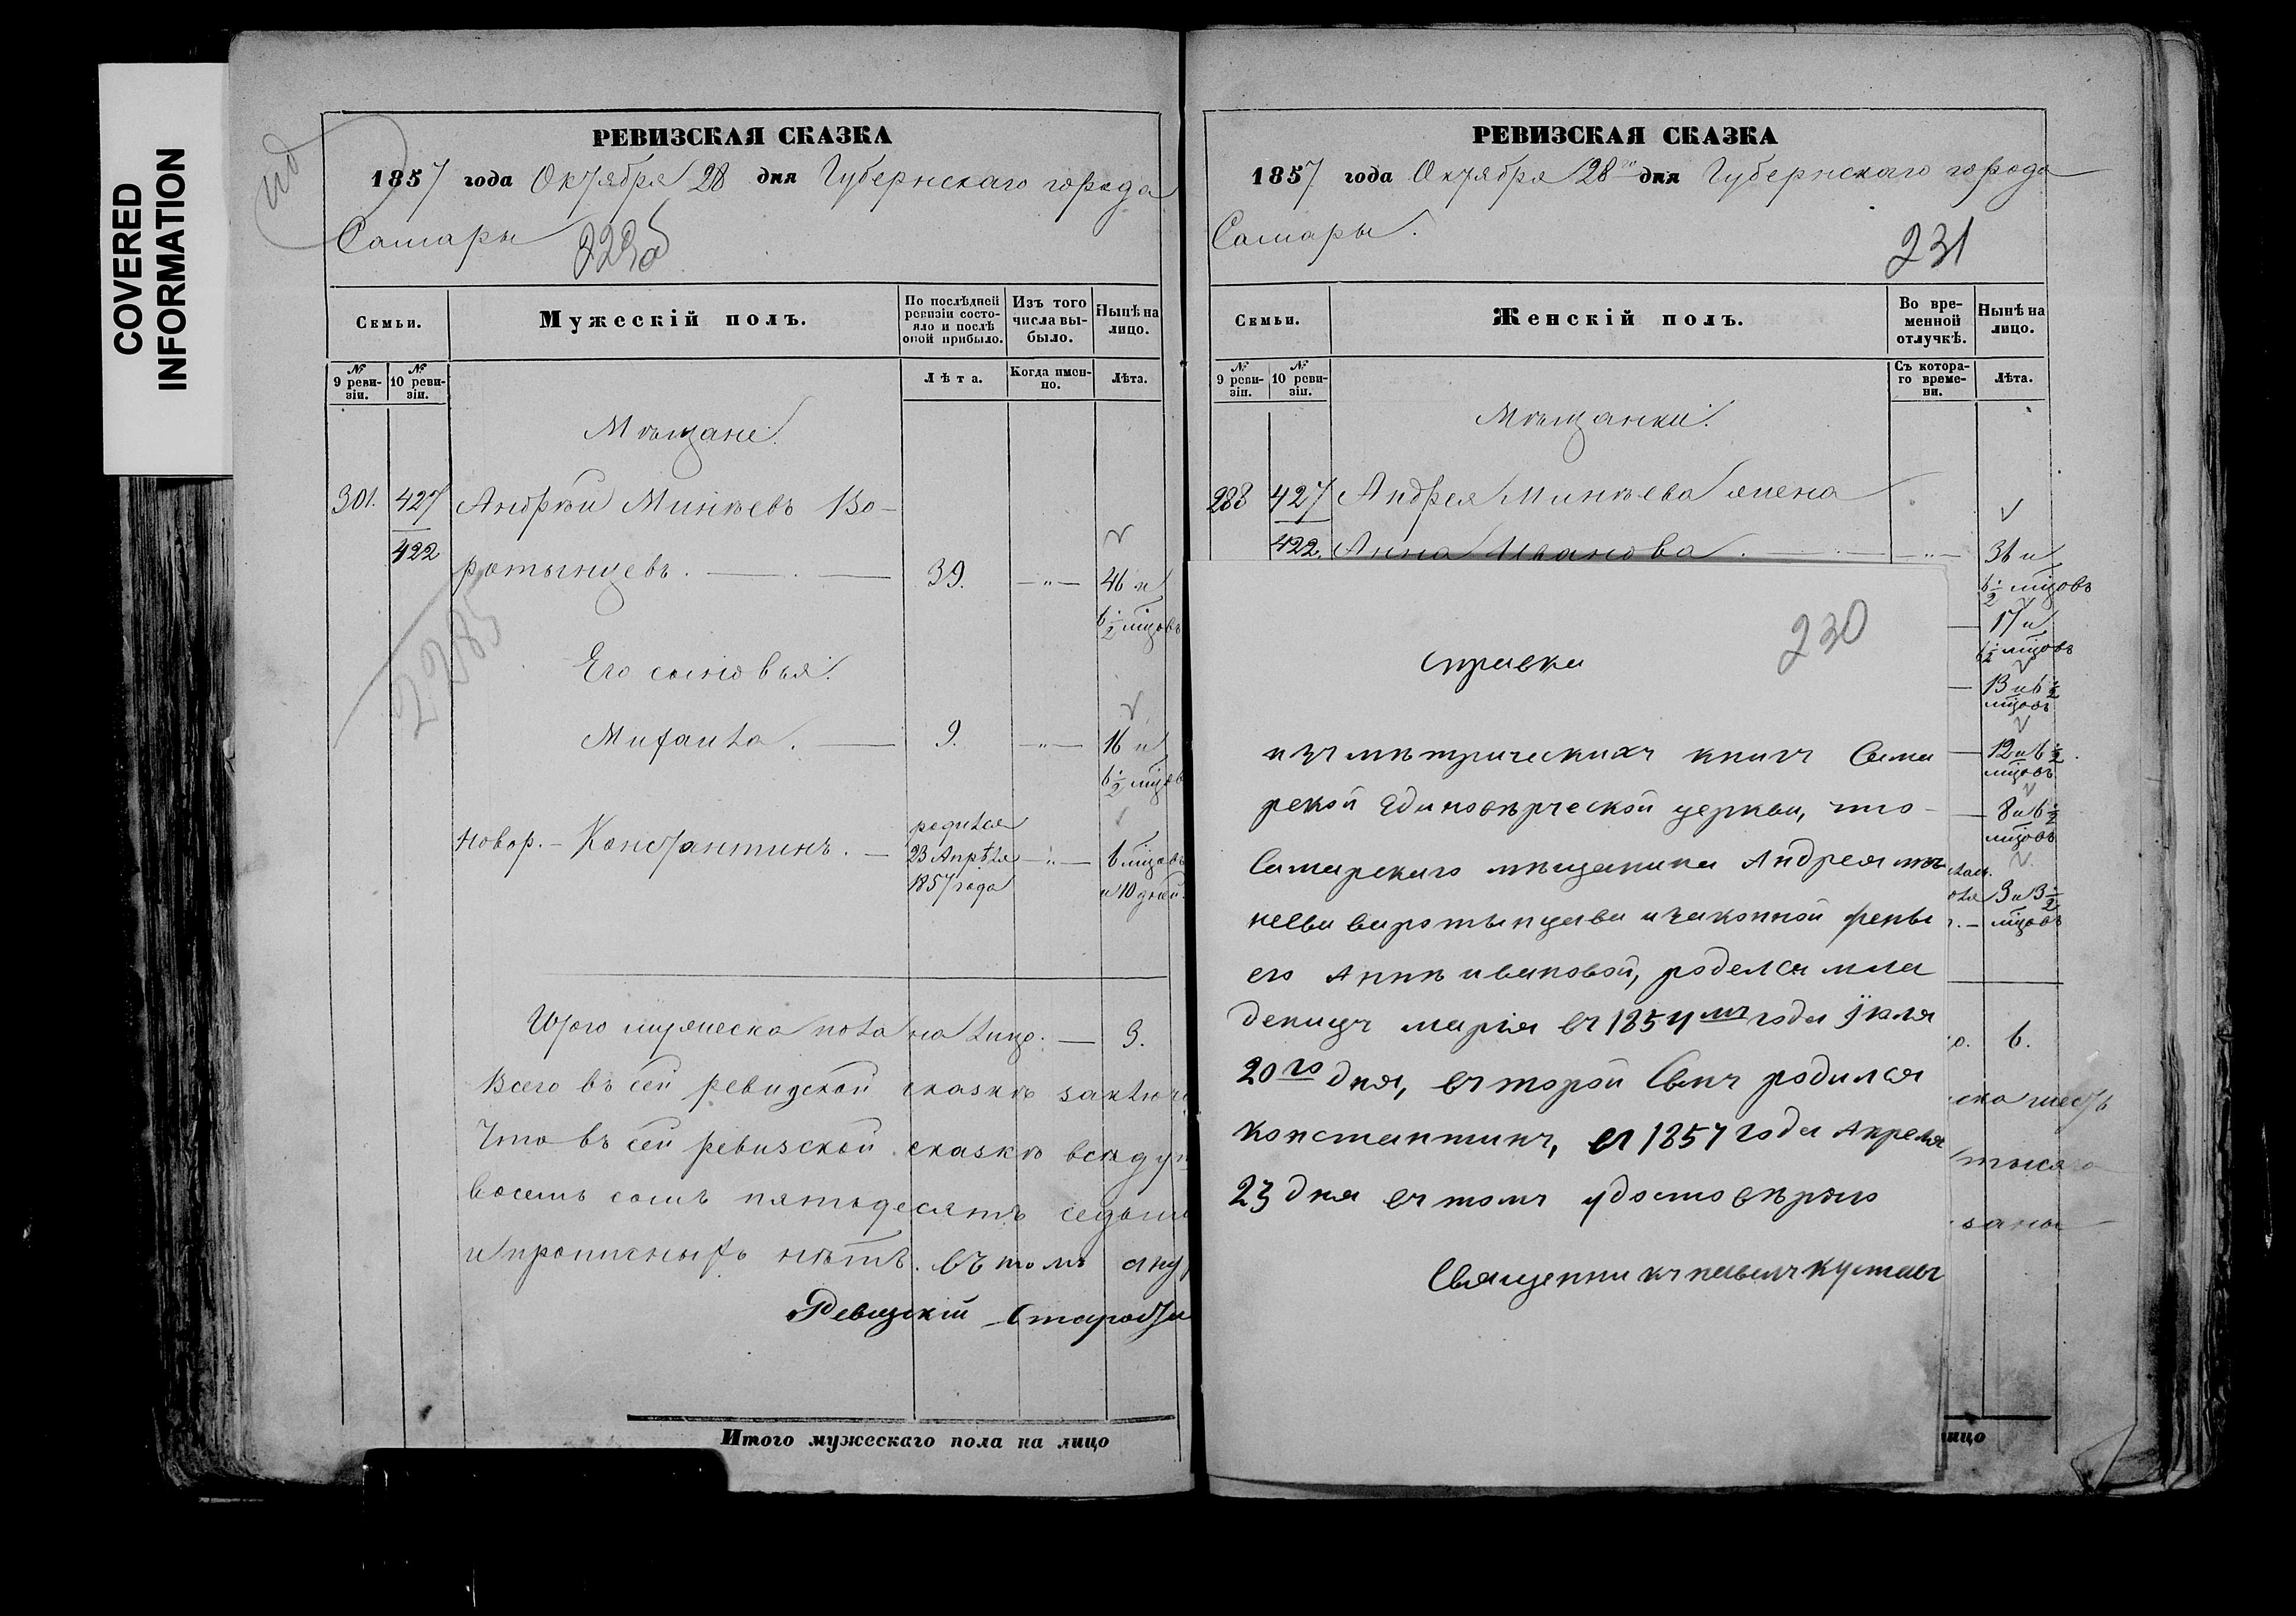 COVERED
INFORMATION
РЕВИЗСКАЯ СКАЗКА
1857 года Октября 28 дня Губернскаго города
Самары
Семьи.
Мужескій полъ.
По послѣдней ревизіи состояло и послѣ оной прибыло.
Изъ того числа выбыло.
Нынѣ на лицо.
№ 9 ревизіи.
№ 10 ревизіи.
Лѣта.
Когда именно.
Лѣта.
Мѣщане.
301. 427 Андрѣй Минѣевъ Во-
422 ротынцевъ. 39. — " — 46 и
6 1/2 мцовъ
2285
Его сыновья:
Михаила. 9. — " — 16 и
6 1/2 мцов
новор. - Константинъ. — родился
23 Апрѣля — " — 6 мцовъ
1857 года и 10 дней.
Итого мужеска пола на лицо. — 3.
Всего въ сей ревизской сказкѣ заключ
Что въ сей ревизской сказкѣ всѣ ду
восемь сотъ пятьдесятъ седьм
и прописныхъ нѣтъ. въ томъ
Ревизскій Старо
Итого мужескаго пола на лицо
РЕВИЗСКАЯ СКАЗКА
1857 года Октября 28 дня Губернскаго города
Самары.
231
Семьи.
Женскій полъ.
Во временной отлучкѣ.
Нынѣ на лицо.
№ 9 ревизіи.
№ 10 ревизіи.
Съ котораго времени.
Лѣта.
Мѣщанки.
288 427 Андрея Минѣева жена
422. Анна Иванова. — " — 36 и
6 1/2 мцовъ
17 и
6 1/2 мцовъ
13 и 6 1/2
мцовъ
12 и 6 1/2
мцовъ
8 и 6 1/2
мцовъ
3 и 3 1/2
мцовъ
6.
230
справка
изъ мѣтрическихъ книгъ Сама
рской Единовѣрческой церкви, что
Самарскаго мѣщанина Андрея ми
неева варотынцава и законной жены
его Аннѣ ивановой, роделся мла
деницъ марія въ 1854 мъ года
20 го дня, въторой сынъ родился
константинъ, въ 1857 года Апреля
23 дня въ томъ удостовѣряю
Священникъ павелъ
ицо